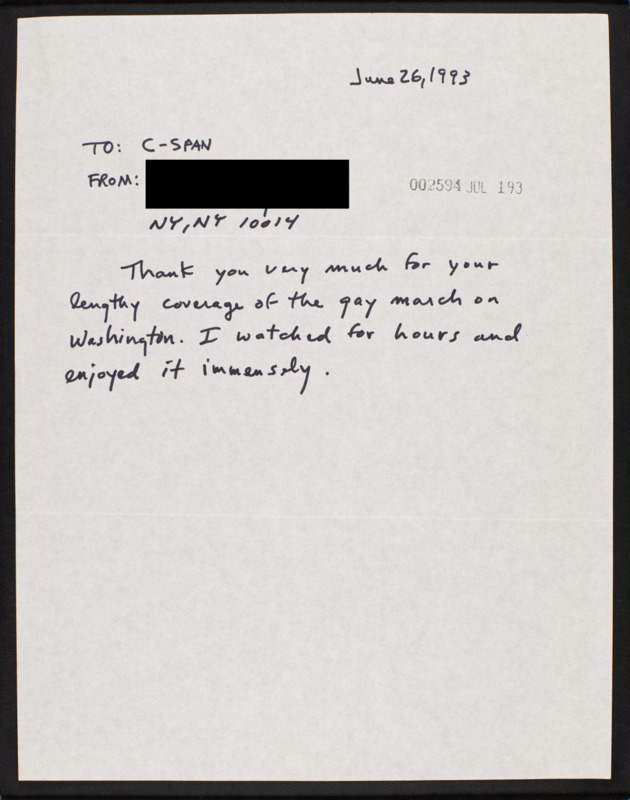 June 26, 1993
TO: C-SPAN
FROM:
002594 JUL 193
NY, NY 10014
Thank you very much for your
lengthy coverage of the gay march on
Washington. I watched for hours and
enjoyed it immensely.